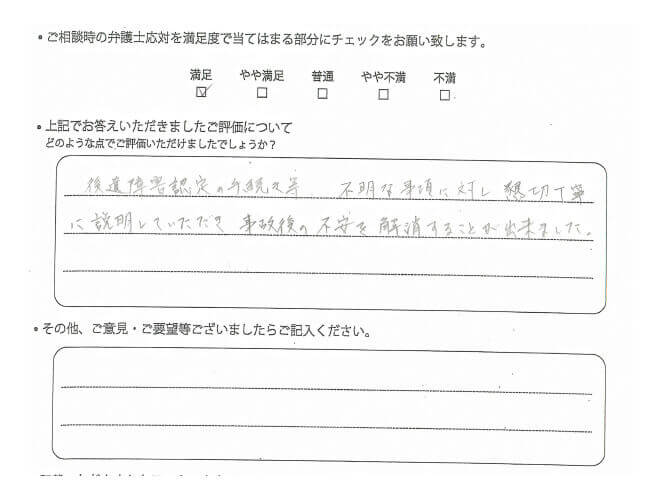 ・ご相談時の弁護士応対を満足度で当てはまる部分にチェックをお願い致します。
満足 やや満足 普通 やや不満 不満
☑ □ □ □ □
・上記でお答えいただきましたご評価について
どのような点でご評価いただけましたでしょうか？
後遺障害認定の手続き等、不明な事項に対し懇切丁寧
に説明していただき事故後の不安を解消することが出来ました。
・その他、ご意見・ご要望等ございましたらご記入ください。